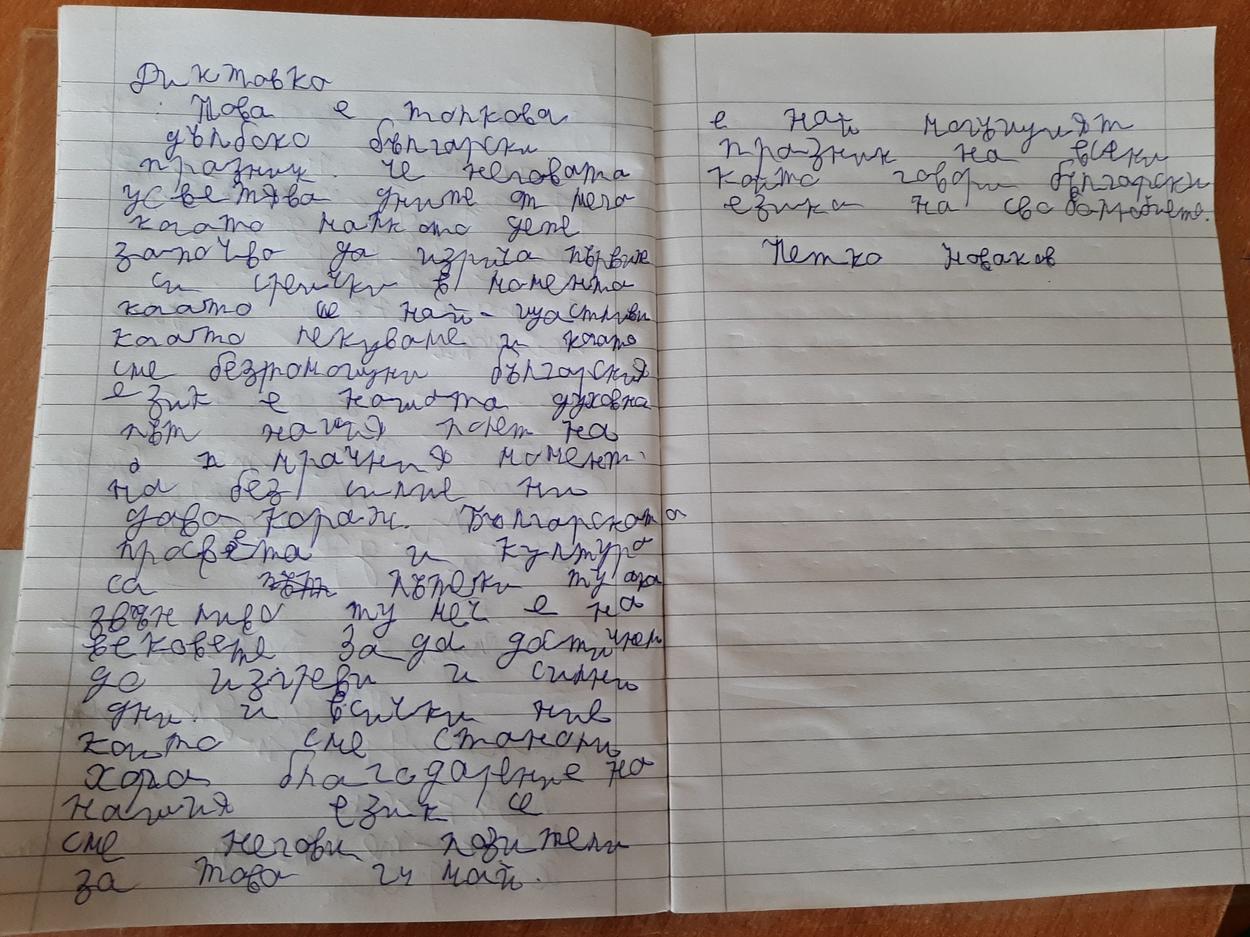 Диктовка
Това е толкова
дълбоко български
празник. че неговата
усветява дните от мога
когато малкото дете
започва да изрича първите
си срички в момента
когато се най-щастливи
когато лекуваме и когато
сме безпомощни българския
език е нашата духовна
път нашия полет на
мрачния момент
на без силие ни
дава кораж. Българската
просвета и култура
са пътеки ту
звънливо ту меч е на
вековете за да достигнем
до изгреви и силни
дни. и всички ние
които сме станали
хора благодарение на
нашия език се
сме негови пазители
за това 24 май.
е най могъщият
празник на всеки
който говори български
езика на свободолюбието.
Петко Новаков